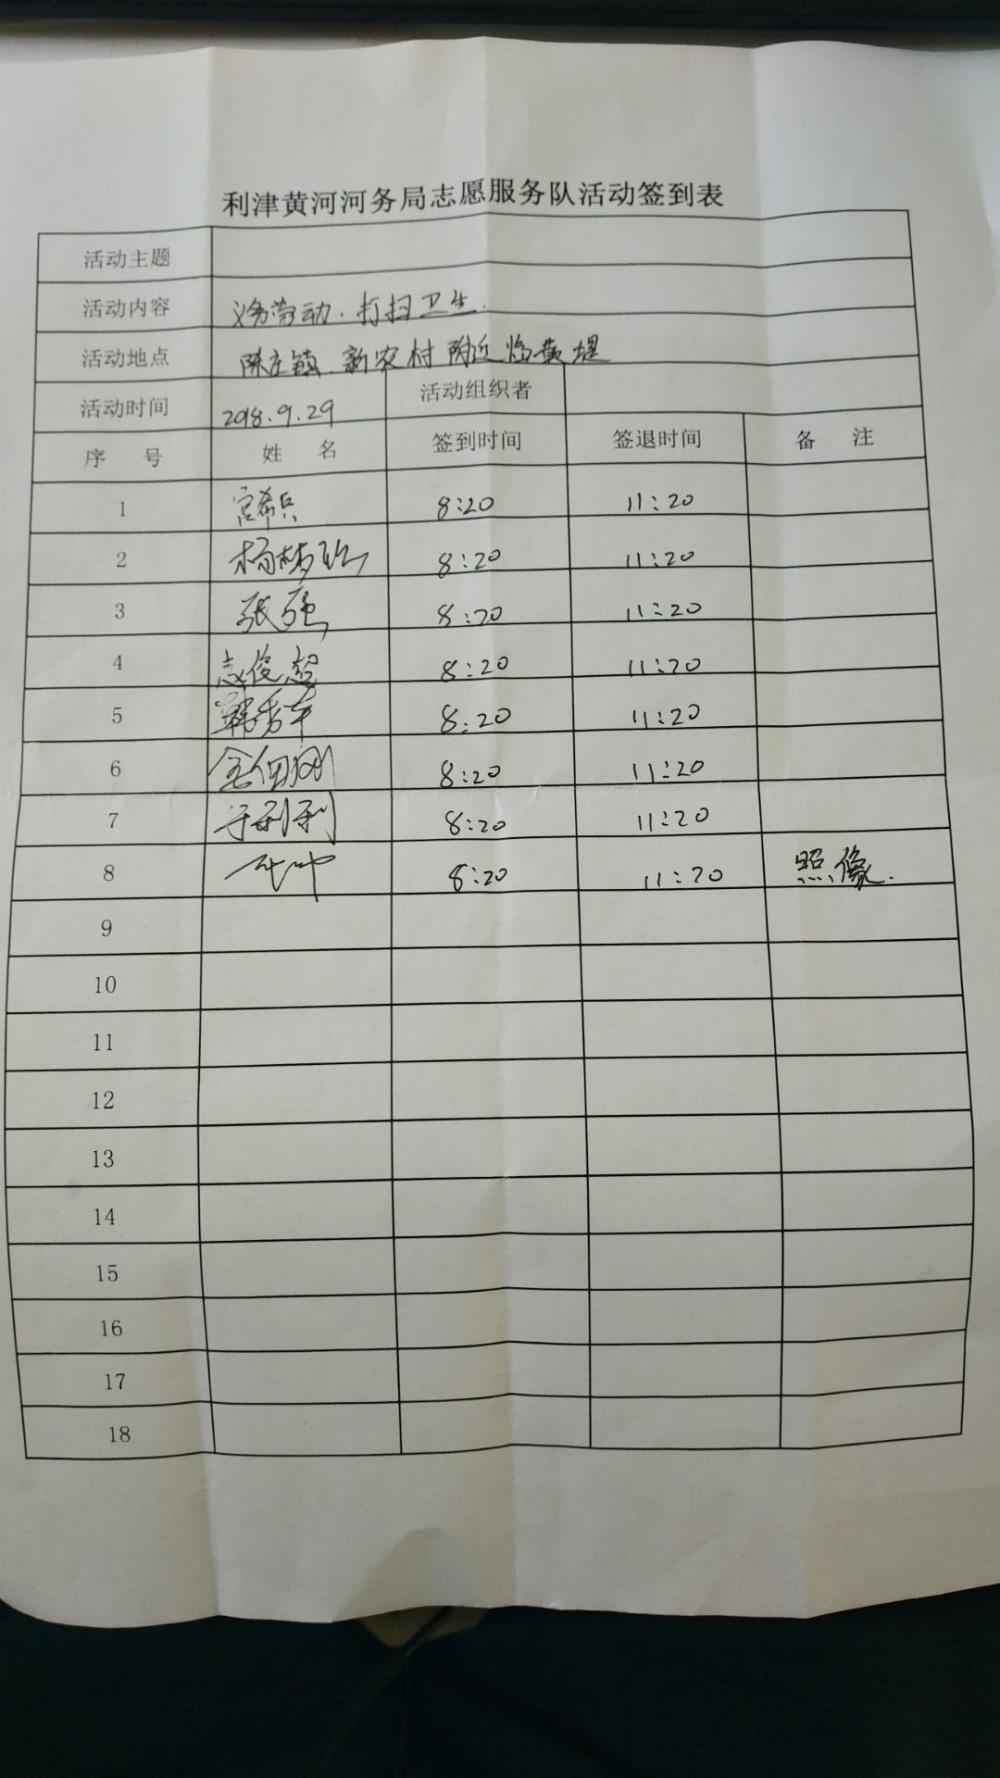 利津黄河河务局志愿服务队活动签到表
活动主题
活动内容 义务劳动.打扫卫生.
活动地点 陈庄镇.新农村附近临黄堤
活动时间 2018.9.29 活动组织者
序 号 姓 名 签到时间 签退时间 备 注
1 宫希兵 8:20 11:20
2 杨梦 8:20 11:20
3 张强 8:20 11:20
4 俊超 8:20 11:20
5 韩秀军 8:20 11:20
6 8:20 11:20
7 于利利 8:20 11:20
8 8:20 11:20 照像.
9
10
11
12
13
14
15
16
17
18